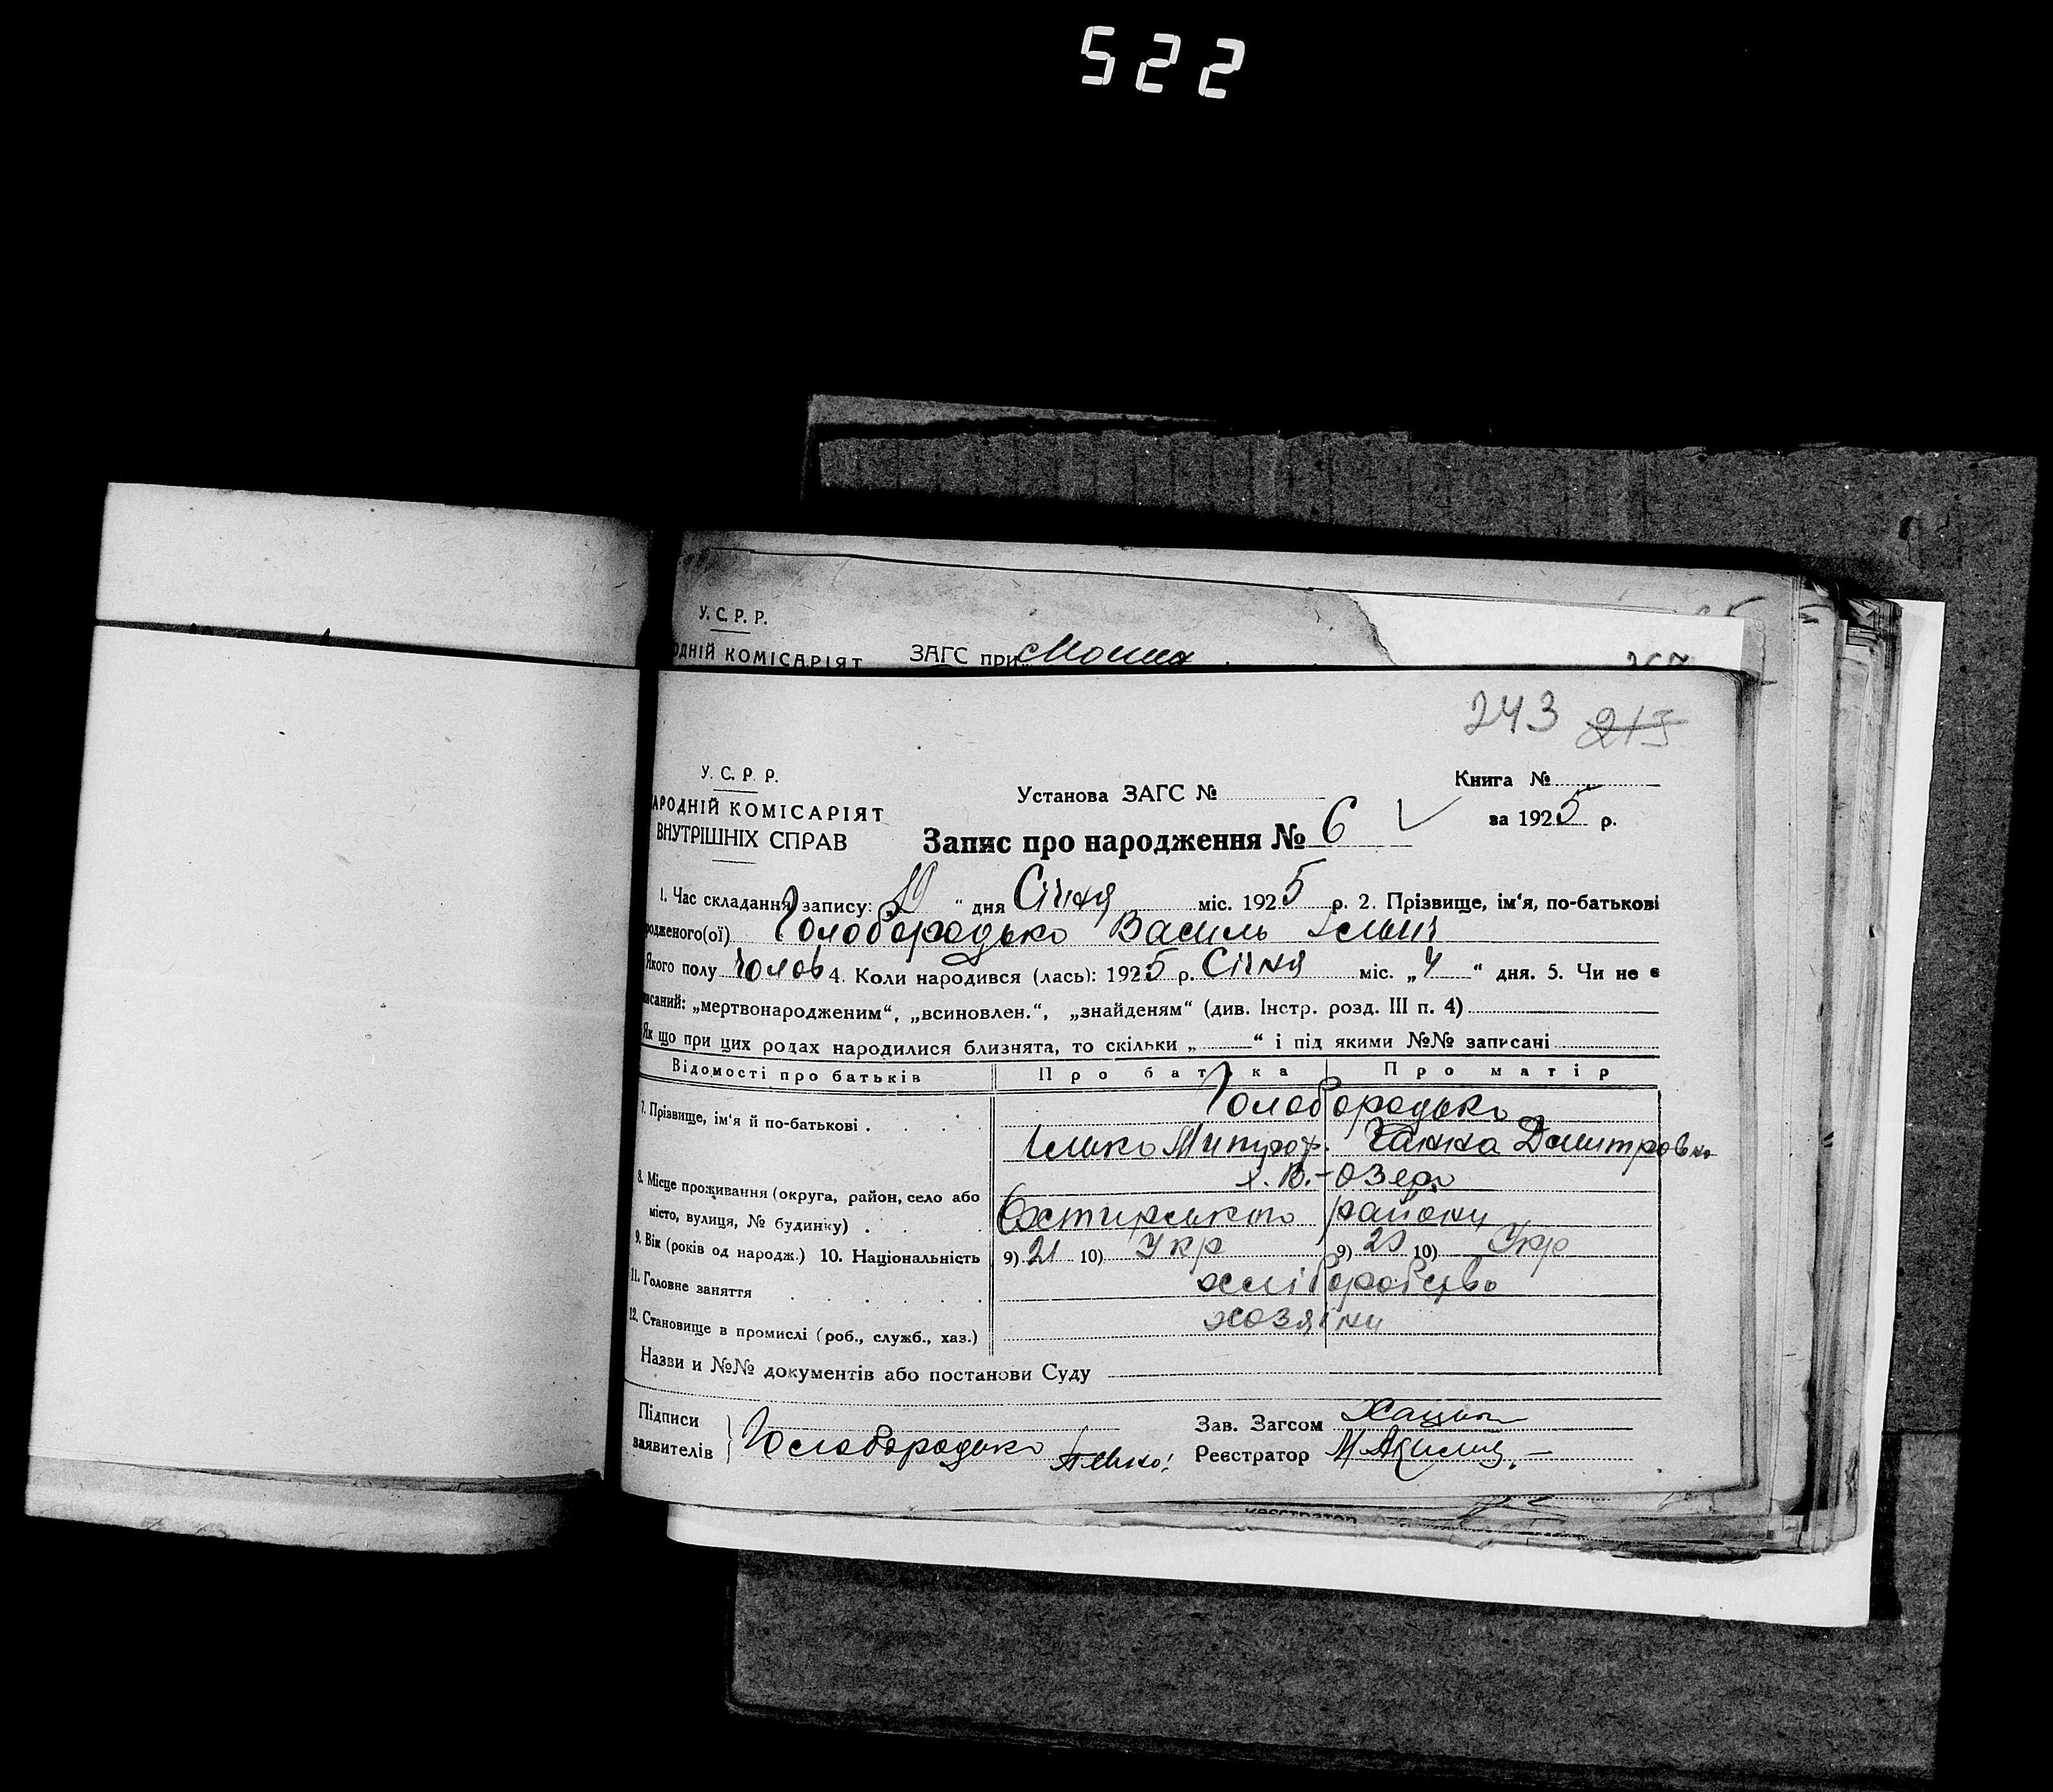 522
У. С. Р. Р.
ОДНІЙ КОМІСАРІЯТ ЗАГС при
243 215
У. С. Р. Р.
АРОДНІЙ КОМІСАРІЯТ
ВНУТРІШНІХ СПРАВ
Установа ЗАГС №
Книга №
за 1925 р.
Запис про народження № 6
1. Час складання запису: 10 “ дня Січня міс. 1925 р. 2. Прізвище, ім‘я, по-батькові
родженого(ої) Голобородько Василь
Якого полу чолов 4. Коли народився (лась): 1925 р. Січня міс. „4 “ дня. 5. Чи не є
писаний: „мертвонародженим“, „всиновлен.“, „знайденям“ (див. Інстр. розд. III п. 4)
Як що при цих родах народилися близнята, то скільки „ “ і під якими №№ записані
Відомості про батьків Про батька Про матір
7. Прізвище, ім‘я й по-батькові . . . . Голобородько
Ілько Митроф. Ганна Дмитровна
8. Місце проживання (округа, район, село або х. В.-Озеро
місто, вулиця, № будинку) . . . Охтирського району
9. Вік (років од народж.) 10. Національність 9) 21 10) Укр 9) 20 10) Укр
11. Головне заняття . . . . . . хліборобство
12. Становище в промислі (роб., служб., хаз.) хозяїни
Назви и №№ документів або постанови Суду
Підписи
заявителів } Голобородько
Зав. Загсом
Реєстратор
Реєстратор